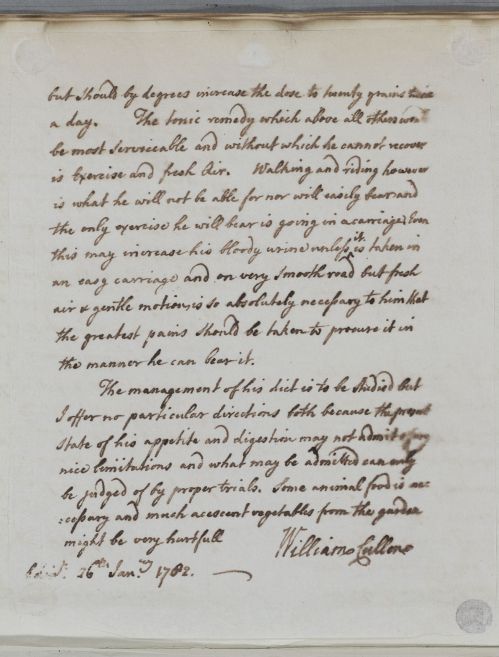 but should by degrees increase the dose to twenty grains twice
a day. The tonic remedy which above all others will
be most serviceable and without which he cannot recover
is Exercise and fresh Air. Walking and riding however
is what he will not be able for nor will easily bear and
the only exercise he will bear is going in a carriage; Even
this may increase his bloody urine unless it is taken in
an easy carriage and on very smooth road but fresh
air & gentle motion, is so absolutely necessary to him that
the greatest pains should be taken to procure it in
the manner he can bear it.
The management of his diet is to be studied but
I offer no particular directions both because the present
state of his appetite and digestion may not admit of any
nice limitations and what may be admitted can only
be judged of by proper trials. Some animal food is ne-
:cessary and much acescent vegetables from the garden
might be very hurtfull
William Cullen
26th Jany 1782.